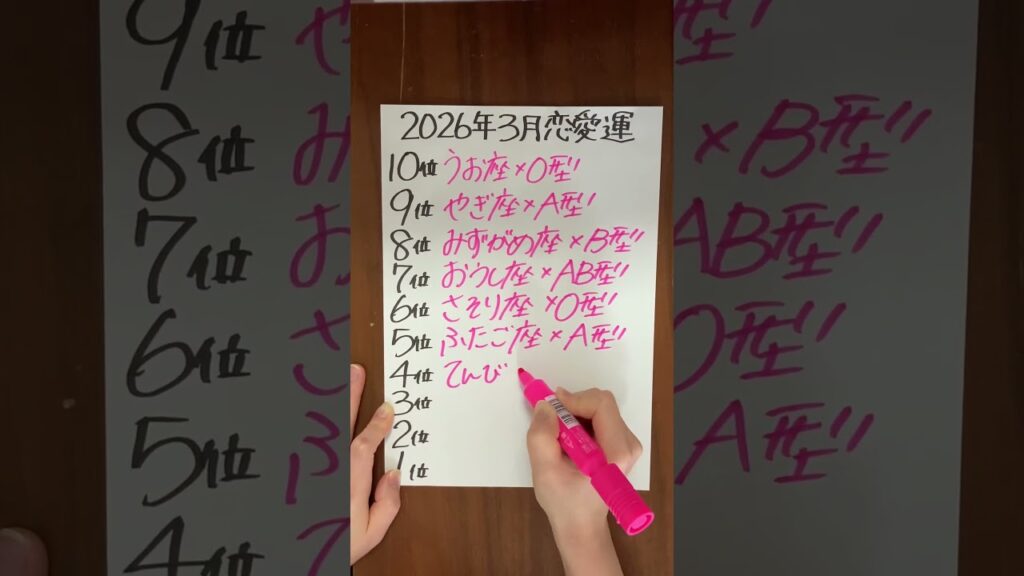 2026年3月恋愛運
10位 うお座×O型!!
9位 やぎ座×A型!!
8位 みずがめ座×B型!!
7位 おうし座×AB型!!
6位 さそり座×O型!!
5位 ふたご座×A型!!
4位 てんび
3位
2位
1位